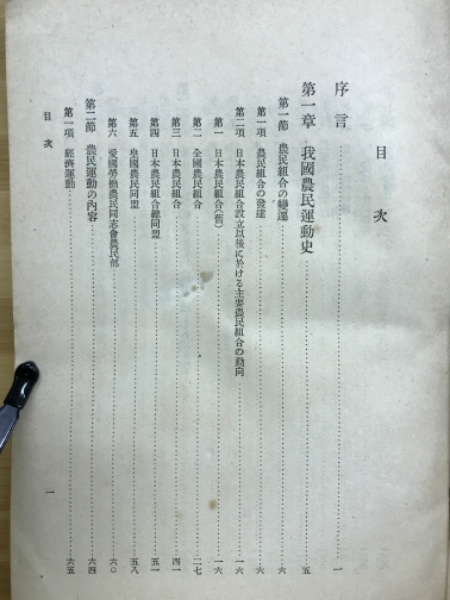 目次
序言……一
第一章 我國農民運動史……五
第一節 農民組合の變遷……六
第一項 農民組合の發達……六
第二項 日本農民組合設立以後に於ける主要農民組合の動向……一六
第一 日本農民組合(舊)……一六
第二 全國農民組合……二七
第三 日本農民組合……四一
第四 日本農民組合總同盟……五一
第五 皇國農民同盟……五八
第六 愛國勞働農民同志會農民部……六〇
第二節 農民運動の內容……六四
第一項 經濟運動……六五
目次
一